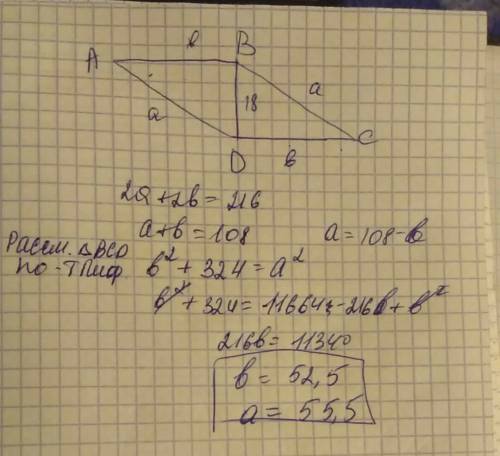 b
A B
a 18 a
D b C
2a + 2b = 216
a + b = 108 a = 108 - b
Рассм. ΔBCD
по - Т Пиф. b² + 324 = a²
b² + 324 = 11664 - 216b + b²
216b = 11340
b = 52,5
a = 55,5